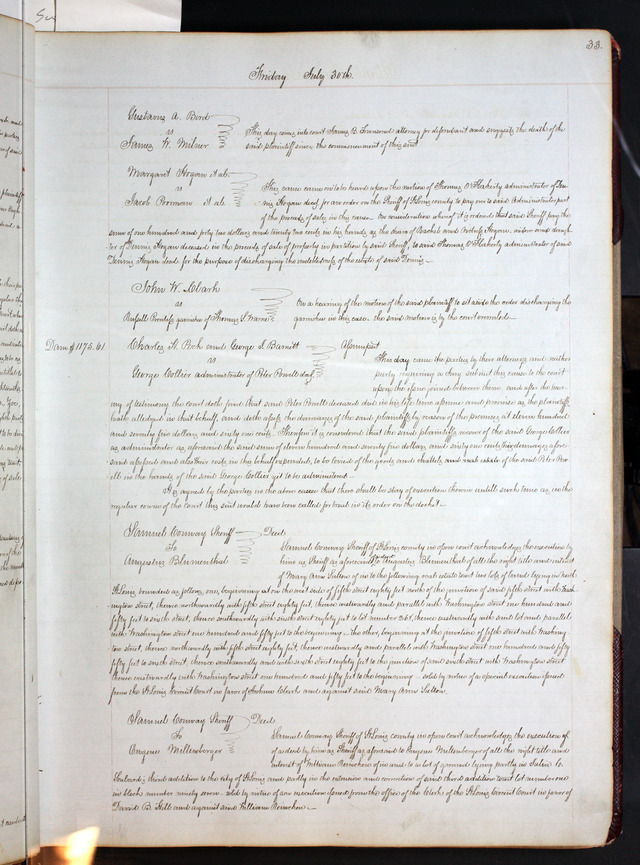 33.
Friday July 30th.
Gustavus A. Bird
vs
James W. Milner
This day comes into court James B. Townsend attorney for defendant and suggests the death of the
said plaintiff since the commencement of this suit
Margaret Hogan et als
vs
Jacob Borman et als
This cause came on to be heard upon the motion of Thomas O'Flaherty administrator of
Hogan decd for an order on the Sheriff of St Louis county to pay over to said Administrator part
of the proceeds of sales in this cause. On consideration whereof it is ordered that said Sheriff pay the
sum of one hundred and forty two dollars and twenty two cents in his hands as the share of Rachel and Bridget Hogan, widow and daugh
ter of Dennis Hogan deceased in the proceeds of sale of property in partition by said Sheriff, to said Thomas O'Flaherty administrator of said
Dennis Hogan decd for the purpose of discharging the indebtedness of the estate of said Dennis.
John W. Clark
vs
garnishee of Thomas S. Warne
On a hearing of the motion of the said plaintiff to set aside the order discharging the
garnishee in this case the said motion is by the court overruled.
Dam $1175.61
Charles H. Peck and George S. Barnitt
vs
George Collier administrator of Peter Powell decd
Assumpsit
This day came the parties by their attorneys and neither
party requiring a jury submit this cause to the court
upon the issue joined between them, and after the hear
ing of testimony the court doth find that said Peter Powell deceased did in his life time assume and promise as the plaintiffs
hath alledged in that behalf, and doth assess the damages of the said plaintiffs by reason of the premises at eleven hundred
and seventy five dollars and sixty one cents. Therefore it is considered that the said plaintiffs recover of the said George Collier
as administrator as aforesaid the said sum of eleven hundred and seventy five dollars and sixty one cents their damages afore
said assessed and also their costs in this behalf expended, to be levied of the goods and chattels and real estate of the said Peter Pow
ell in the hands of the said George Collier yet to be administered.
It is agreed by the parties in the above cause that there shall be stay of execution thereon untill such time as in the
regular course of the court this suit would have been called for trial in its order on the docket.
Samuel Conway Sheriff
To
Augustus Blumenthal
Deed
Samuel Conway Sheriff of St Louis county in open court acknowledges the execution by
him as Sheriff as aforesaid to Augustus Blumenthal of all the right title and interest
of Mary Ann Sutton of in to the following real estate to wit two lots of land lying in north
St Louis bounded as follows, one, beginning at on the west side of fifth street eighty feet north of the junction of said fifth street with Wash
ington street, thence northwardly with fifth street eighty feet, thence westwardly and parallel with Washington street one hundred and
fifty feet to sixth street, thence southwardly with sixth street eighty feet to lot number 258, thence eastwardly with said lot and parallel
with Washington street one hundred and fifty feet to the beginning. The other, beginning at the junction of fifth street with Washing
ton street, thence northwardly with fifth street eighty feet, thence westwardly and parallel with Washington street one hundred and fifty
fifty feet to sixth street, thence southwardly and with sixth street eighty feet to the junction of said sixth street with Washington street
thence eastwardly with Washington street one hundred and fifty feet to the beginning - sold by virtue of a special execution issued
from the St Louis Circuit Court in favor of Clark and against said Mary Ann Sutton.
Samuel Conway Sheriff
To
Eugene Miltenberger
Deed
Samuel Conway Sheriff of St Louis county in open court acknowledges the execution of
of a deed by him as Sheriff as aforesaid to Eugene Miltenberger of all the right title and
interest of William Renshaw of in and to a lot of ground lying partly in Julia C.
Soulards third addition to the City of St Louis and partly in the extension and correction of said third addition to wit lot number one
in block number ninety seven - sold by virtue of an execution issued from the office of the Clerk of the St Louis Circuit Court in favor of
David B. Hill and against said William Renshaw.